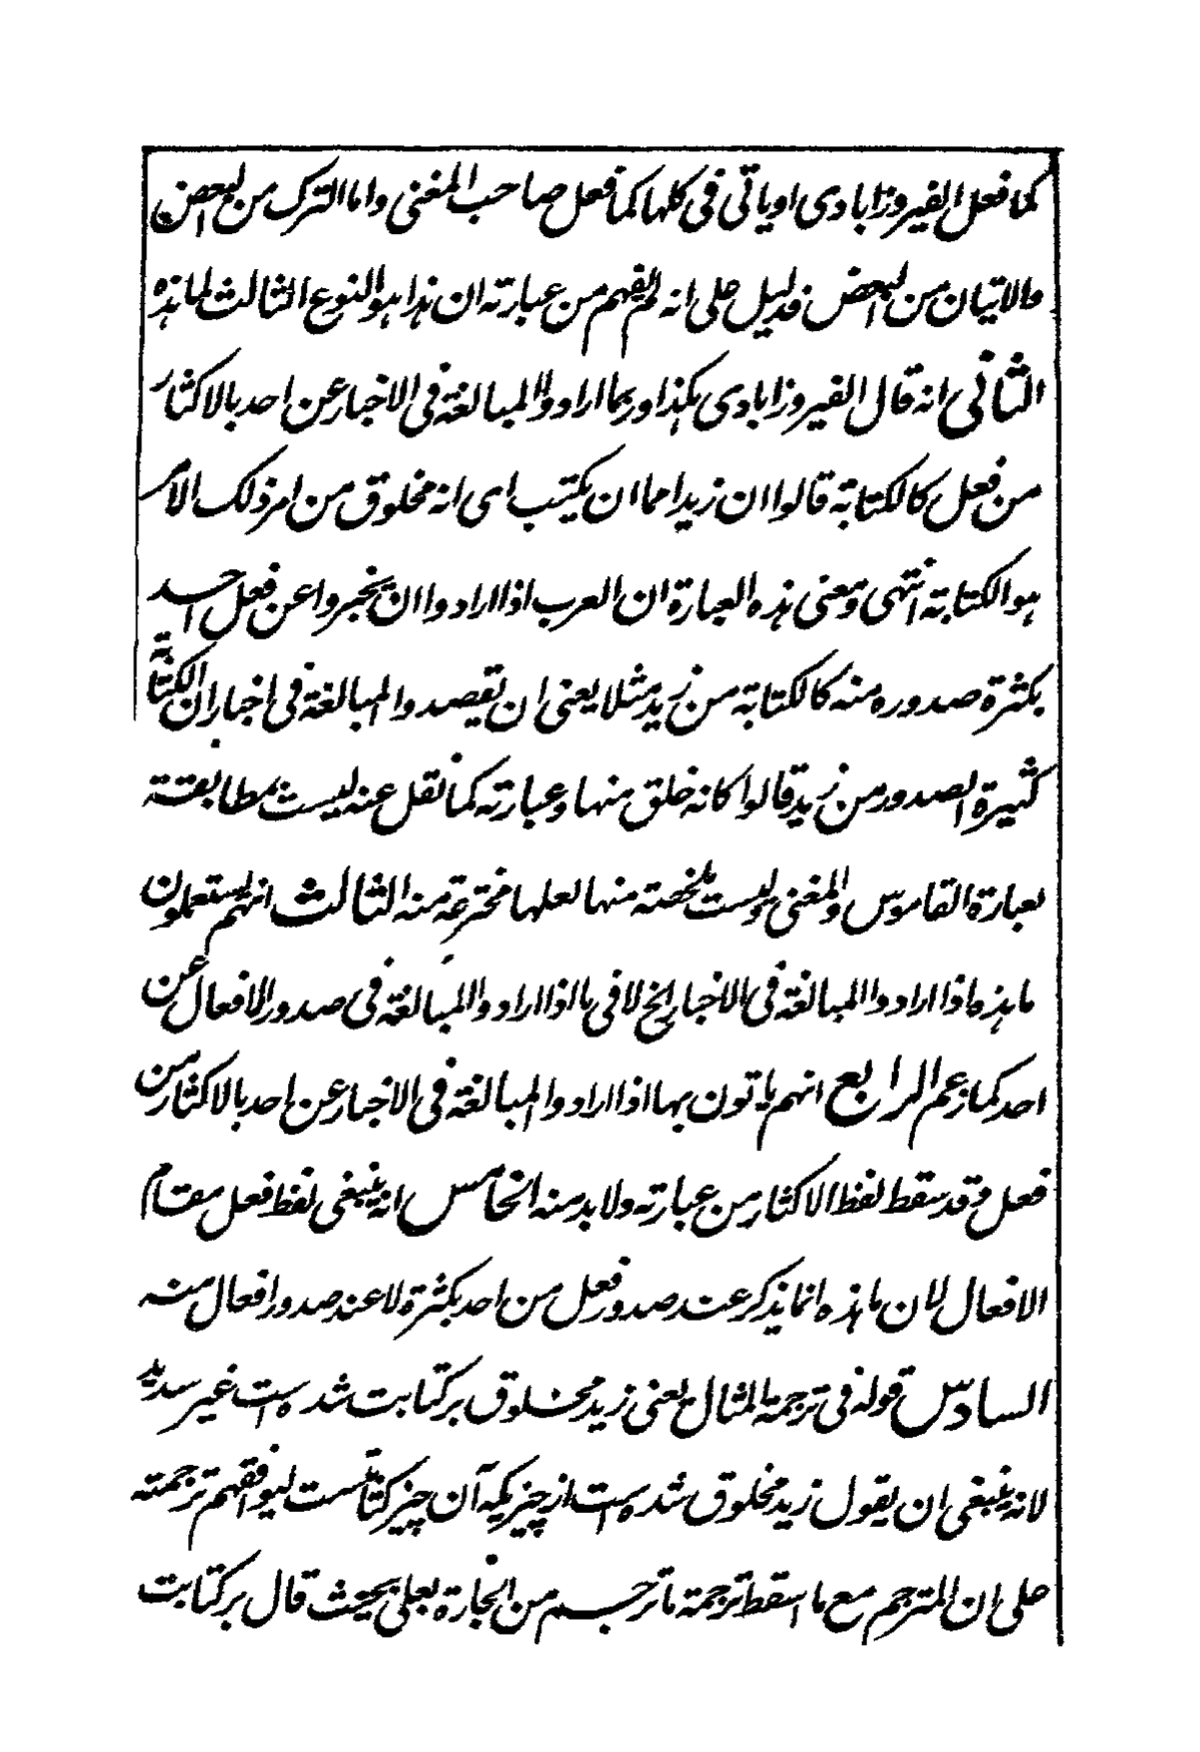 كما فعل الفيروزابادى اوياتى فى كلها كما فعل صاحب المغنى واما الترك من البعض
والاتيان من البعض فدليل على انه لم يفهم من عبارته ان هذا هو النوع الثالث لما هذه
الثانى انه قال الفيروزابادى هكذا وربما ارادوا المبالغة فى الاخبار عن احد بالاكثار
من فعل كالكتابة قالوا ان زيدا مما ان يكتب اى انه مخلوق من امر ذلك الامر
هو الكتابة انتهى ومعنى هذه العبارة ان العرب اذا ارادوا ان يخبروا عن فعل احد
بكثرة صدوره منه كالكتابة من زيد مثلا يعنى ان يقصدوا المبالغة فى اخبار ان الكتابة
كثيرة الصدور من زيد قالوا كانه خلق منها وعبارته كما نقل عنه ليست بمطابقة
بعبارة القاموس والمغنى وليست ملخصة منها لعلها مخترعة منه الثالث انهم يستعملون
ما هذه اذا ارادوا المبالغة فى الاخبار الخ لا فى ما اذا ارادوا المبالغة فى صدور الافعال عن
احد كما زعم الرابع انهم ياتون بها اذا ارادوا المبالغة فى الاخبار عن احد بالاكثار من
فعل وقد سقط لفظ الاكثار من عبارته ولا بد منه الخامس انه ينبغى لفظ فعل مقام
الافعال لان ما هذه انما يذكر عند صدور فعل من احد بكثرة لا عند صدور افعال منه
السادس قوله فى ترجمة المثال يعنى زيد مخلوق بر كتابت شده است غير سديد
لانه ينبغى ان يقول زيد مخلوق شده است از چيزيكه آن چيز كتابت ست ليوافقهم ترجمته
على ان المترجم مع ما اسقط ترجمة ما ترجم من الجارة بعلى بحيث قال بر كتابت